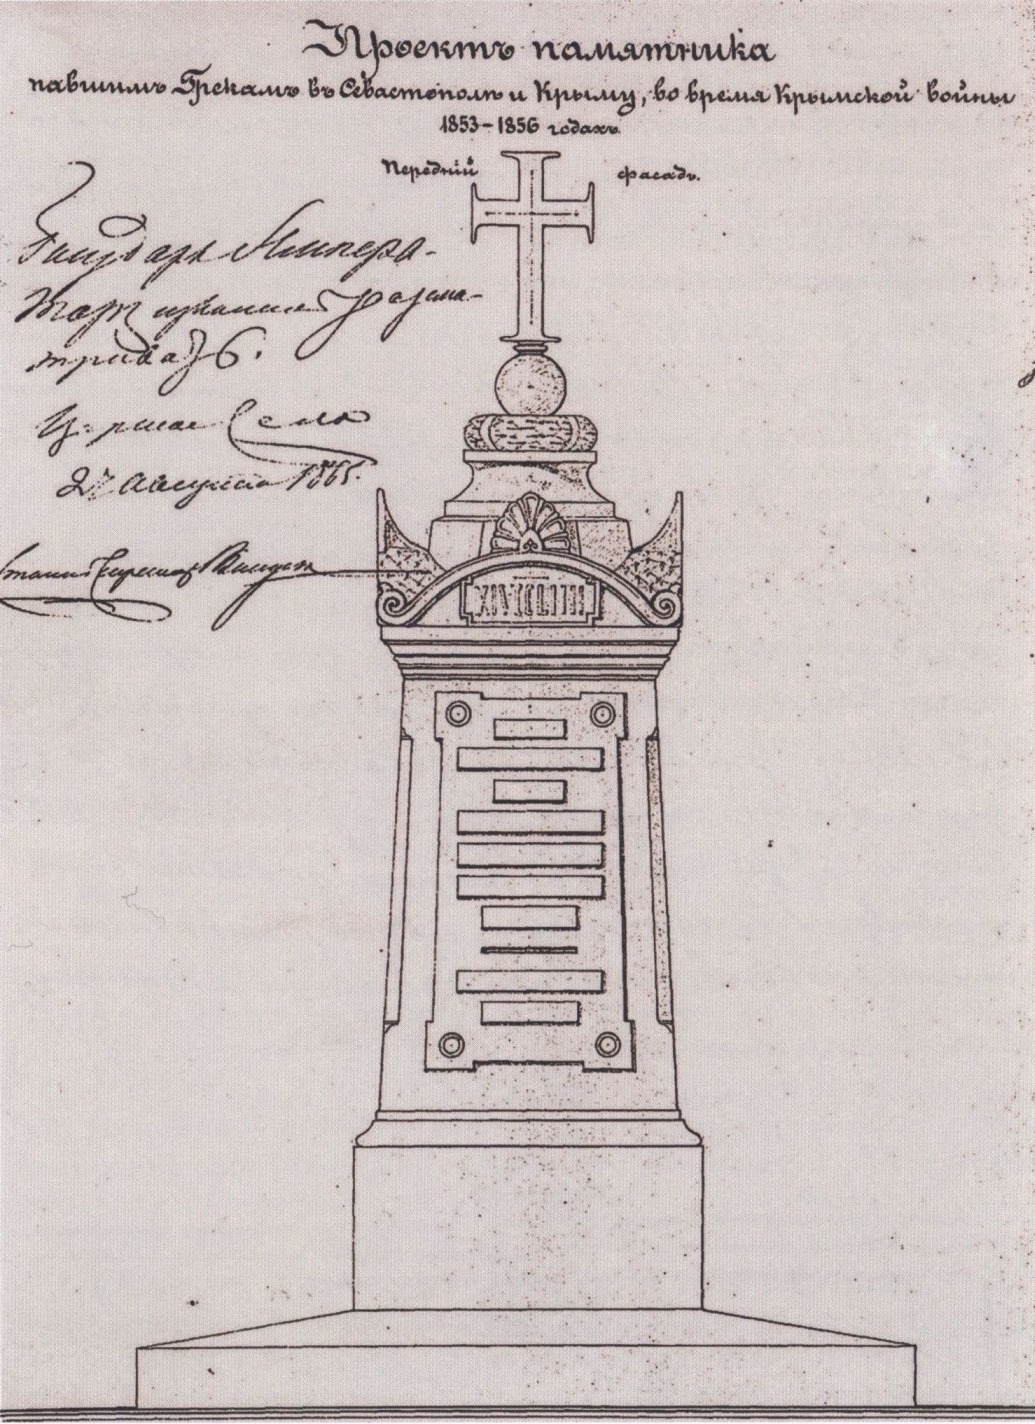 Проектъ памятника
павшимъ Грекамъ въ Севастополѣ и Крыму, во время Крымской войны
1853-1856 годахъ.
Передній фасадъ.
Государь Импера-
торъ изволилъ разсма-
тривать.
Царское Село
27 Августа 1865.